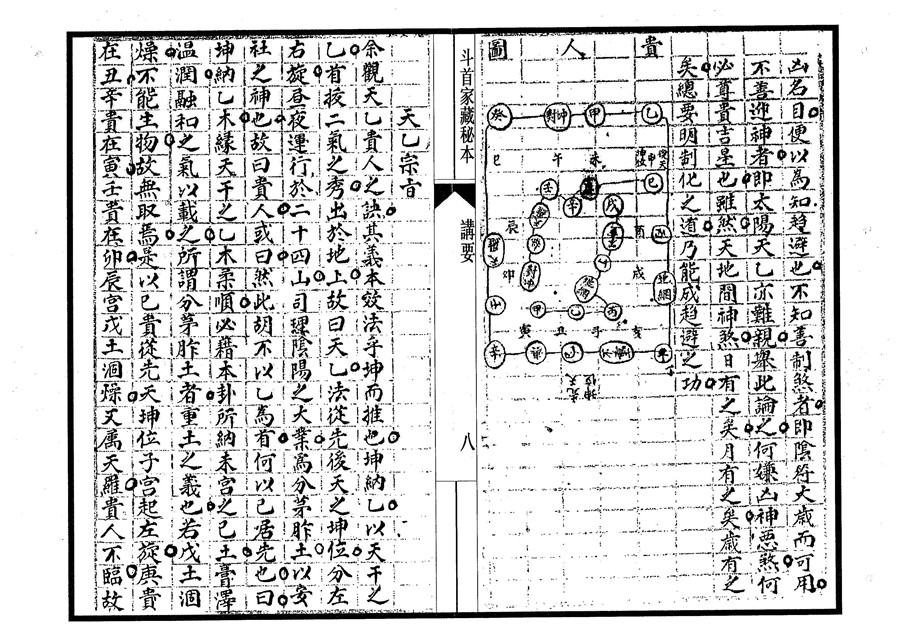 凶名目便以為知趨避也不知善制煞者即陰符大歲而可用
不善迎神者即太陽天乙亦難親舉此論之何嫌凶神惡煞何
必尊貴吉星也雖然天地間神煞日有之矣月有之矣歲有之
矣總要明制化之道乃能成趨避之功
貴人圖
癸 對冲 甲 乙
巳 午 未 申
己
壬 辛 戊
辰 酉
癸
對冲 卯 戌
甲 乙 丙
寅 丑 子 亥
辛
先天坤位
斗首家藏秘本
講要
八
天乙宗旨
余觀天乙貴人之訣其義本效法乎坤而推也坤納乙以天干之
乙首挨二氣之秀出於地上故曰天乙法從先後天之坤位分左
右旋晝夜運行於二十四山司理陰陽之大業為分茅胙土以安
社之神也故曰貴人或曰然此胡不以乙為首何以己居先也曰
坤納乙木緣天干之乙木柔順必藉本卦所納未宮之己土膏澤
温潤融和之氣以載之所謂分茅胙土者重土之義也若戊土涸
燥不能生物故無取焉是以己貴從先天坤位子宮起左旋庚貴
在丑辛貴在寅壬貴在卯辰宮戊土涸燥又屬天羅貴人不臨故